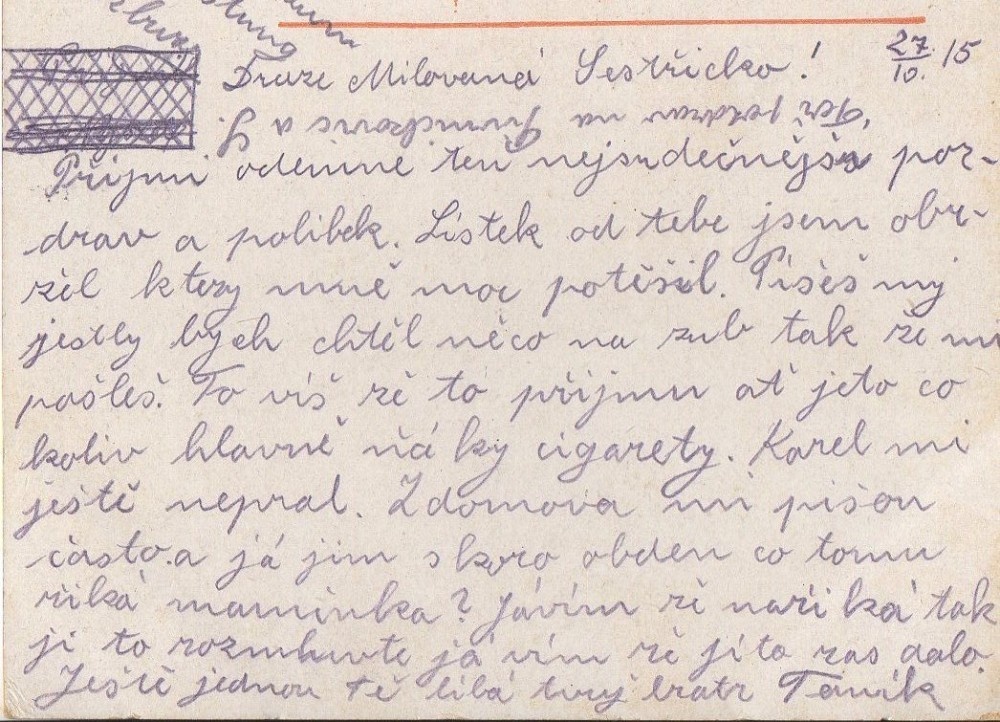 27./10. 15
Draze Milovaná Sestřicko!
pozdrav na a
Přijmi odemne ten nejsrdečnější poz-
drav a polibek. Lístek od tebe jsem obr-
žel ktery mně moc potěšil. Píšeš my
jestly bych chtěl něco na zub tak že mi
pošleš. To víš žě to přijmu ať jeto co
koliv hlavně ňá ky cigarety. Karel mi
ještě nepsal. Zdomova mi pišou
často.a já jim skoro obden co tomu
řiká maminka? Jávím žě naři ká tak
ji to rozmluvte já vím žě jíto zas dalo.
Ještě jednou tě libá tvuj bratr